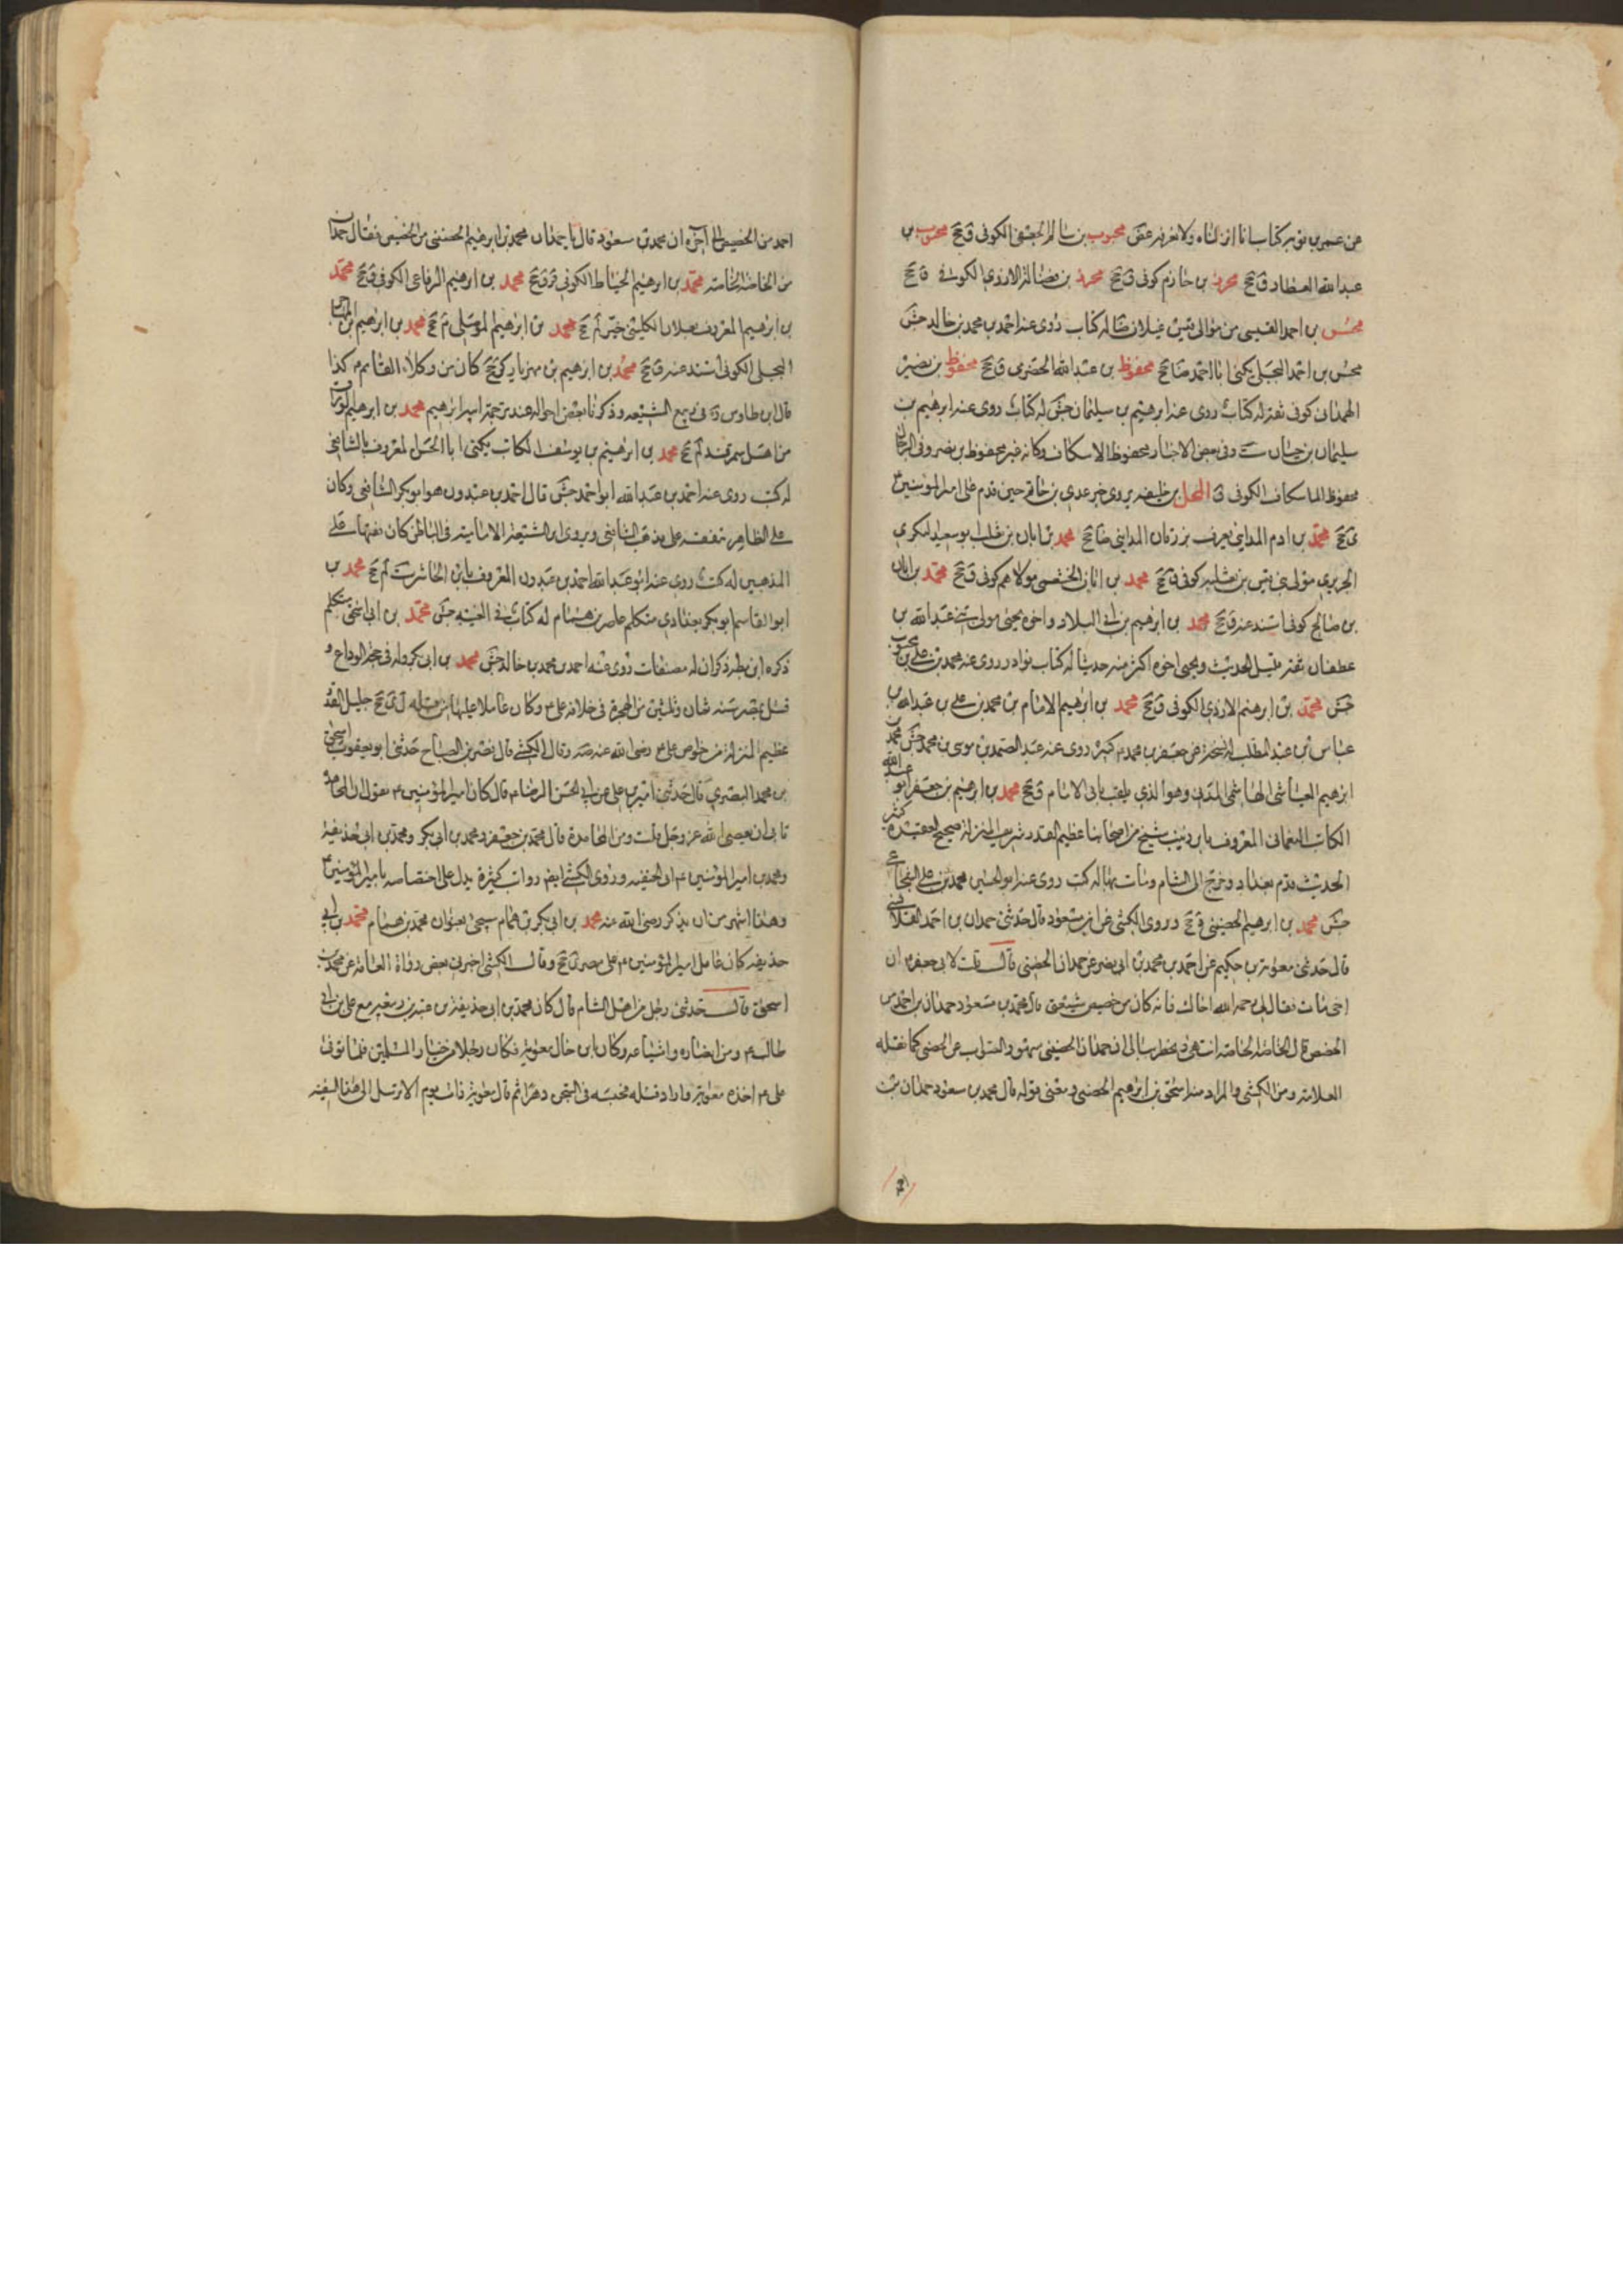 عن عمر بن توبه كتابا انا انزلناه ولا نعرفه عقد محبوب بن سالم الجعفى الكوفى ق جخ محبوب بن
عبدالله العطار ق جخ محرز بن حازم كوفى ق جخ محرز بن فضاله الازدى الكوفى ق جخ
محسن بن احمد القيسى من موالى قيس غيلان ضا له كتاب روى عنه احمد بن محمد بن خالد جش
محسن بن احمد البجلى يكنى ابا احمد ضا جخ محفوظ بن عبدالله الحضرمى ق جخ محفوظ بن نصير
الهمدانى كوفى ثقه له كتاب روى عنه ابرهيم بن سليمان جش له كتاب روى عنه ابرهيم بن
سليمان بن حيان ست وفى بعض الاخبار محفوظ الاسكاف وكانه غير محفوظ بن نصير وفى الرجال
محفوظ الاسكاف الكوفى ق المحل بن خليفه يروى خبر عدى بن حاتم حين قدم على امير المؤمنين ع
ى جخ محمد بن ادم المداينى يعرف بزرقان المداينى ضا جخ محمد بن ابان بن تغلب ابو سعيد البكرى
الجريرى مولى بنى قيس بن ثعلبه كوفى ق جخ محمد بن ابان الخثعمى مولاهم كوفى ق جخ محمد بن ابان
بن صالح كوفى اسند عنه ق جخ محمد بن ابرهيم بن ابى البلاد واخوه يحيى مولى بنى عبدالله بن
غطفان ثقه قليل الحديث ويحيى اخوه اكثر منه حديثا له كتاب نوادر روى عنه محمد بن على بن محبوب
جش محمد بن ابرهيم الازدى الكوفى ق جخ محمد بن ابرهيم الامام بن محمد بن على بن عبدالله بن
عباس بن عبدالمطلب له نسخه عن جعفر بن محمد ع كبيره روى عنه عبدالصمد بن موسى بن محمد جش محمد بن
ابرهيم العباسى الهاشمى المدنى وهو الذى يلقب بابن الامام ق جخ محمد بن ابرهيم بن جعفر ابو عبدالله
الكاتب النعمانى المعروف بابن زينب شيخ من اصحابنا عظيم القدر شريف المنزله صحيح العقيده كثير
الحديث قدم بغداد وخرج الى الشام ومات بها له كتب روى عنه ابوالحسين محمد بن على الشجاعى
جش محمد بن ابرهيم الحضينى ج وروى الكشى عن ابن مسعود قال حدثنى حمدان بن احمد القلانسى
قال حدثنى معويه بن حكيم عن احمد بن محمد بن ابى نصر عن حمدان الحضينى قال قلت لابى جعفر ع ان
اخى مات فقال لى رحمه الله اخاك فانه كان من خصيص شيعتى قال محمد بن مسعود حمدان بن احمد من
الخصيص قال الخاصه الخاصه انتهى ويخطر ببالى ان حمدان الحضينى سهو والصواب عن الحضينى كما نقله
العلامه ومن الكشى والمراد منه اسحق بن ابرهيم الحضينى ومعنى قوله قال محمد بن مسعود حمدان بن
احمد من الخصيص الى اخره ان محمد بن مسعود قال يا حمدان محمد بن ابرهيم الحضينى من الخصيص فقال حمدان
من الخاصه الخاصه محمد بن ابرهيم الخياط الكوفى ق جخ محمد بن ابرهيم الرفاعى الكوفى ق جخ محمد
بن ابرهيم المعروف بعلان الكلينى خير لم جخ محمد بن ابرهيم الموصلى م جخ محمد بن ابرهيم بن المهاجر
البجلى الكوفى اسند عنه ق جخ محمد بن ابرهيم بن مهزيار كر جخ كان من وكلاء القائم ع كذا
قال ابن طاوس ره فى ربيع الشيعه وذكرنا بعض احواله عند ترجمه ابيه ابرهيم محمد بن ابرهيم الوراق
من اهل سمرقند لم جخ محمد بن ابرهيم بن يوسف الكاتب يكنى ابا الحسن المعروف بالشافعى
له كتب روى عنه احمد بن عبدالله ابو احمد جش قال احمد بن عبدون هو ابو بكر الشافعى وكان
على الظاهر يتفقه على مذهب الشافعى ويروى اى الشيعه الاماميه فى الباطن كان فقيها على
المذهبين له كتب روى عنه ابو عبدالله احمد بن عبدون المعروف بابن الحاشر ست لم جخ محمد بن
ابوالقاسم ابوبكر بغدادى متكلم عاصر بن همام له كتاب فى الغيبه جش محمد بن ابى اسحق متكلم
ذكره ابن بطه ذكر ان له مصنفات روى عنه احمد بن محمد بن خالد جش محمد بن ابى بكر ولد فى حجه الوداع و
قتل بمصر سنه ثمان وثلثين من الهجره فى خلافه على ع وكان عاملا عليها من قبله ل ى جخ جليل القدر
عظيم المنزله من خواص على ع رضى الله عنه صه وقال الكشى قال نصر بن الصباح حدثنى ابو يعقوب اسحق
بن محمد البصرى قال حدثنى امير بن على عن ابى الحسن الرضا ع قال كان امير المؤمنين ع يقول ان المحامده
تابى ان يعصى الله عز وجل قلت ومن المحامده قال محمد بن جعفر ومحمد بن ابى بكر ومحمد بن ابى حذيفه
ومحمد بن امير المؤمنين ع ابن الحنفيه وروى الكشى ايضا روايات كثيره يدل على اختصاصه بامير المؤمنين ع
وهذا اشهر من ان يذكر رضى الله عنه محمد بن ابى بكر بن همام سيجئ بعنوان محمد بن همام محمد بن ابى
حذيفه كان عامل امير المؤمنين ع على مصر ى جخ وقال الكشى اخبرنى بعض رواة العامه عن محمد بن
اسحق قال حدثنى رجل من اهل الشام قال كان محمد بن ابى حذيفه بن عتبه بن ربيعه مع على بن ابى
طالب ع ومن انصاره واشياعه وكان ابن خال معويه وكان رجلا من خيار المسلمين فلما توفى
على ع اخذه معويه واراد قتله فحبسه فى السجن دهرا ثم قال معويه ذات يوم الا نرسل الى هذا السفيه